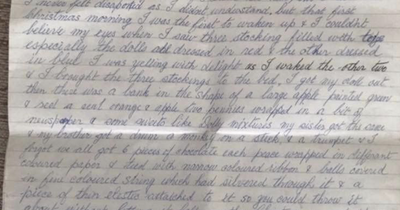 I never felt deprived as I didn't understand, but that first
Christmas morning I was the first to waken up & I couldn't
believe my eyes when I saw three stocking filled with toys
especially the dolls all dressed in red & the other dressed
in blue I was yelling with delight as I waked the other two
& I brought the three stockings to the bed, I got my doll out
then there was a bank in the shape of a large apple painted green
& red a real orange & apple two pennies wrapped in a bit of
newspaper & some sweets like Dolly mixtures my sister got the same
& my brother got a drum, a monkey on a stick, & a trumpet & I
forgot we all got 6 pieces of chocolate each peace wrapped in different
coloured paper & tied with narrow coloured ribbon & balls covered
in fine coloured string which had silvered through it & a
piece of thin elastic attached to it so you could throw it